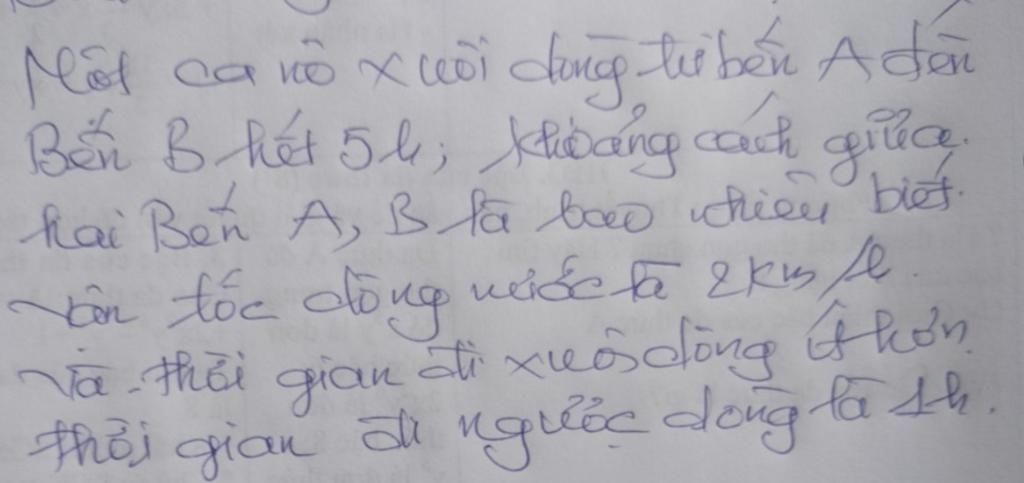 Một ca nô xuôi dòng từ bến A đến
Bến B hết 5h; khoảng cách giữa
hai Bến A, B là bao nhiêu biết
vận tốc dòng nước là 2km/h
và thời gian đi xuôi dòng ít hơn
thời gian đi ngược dòng là 1h.